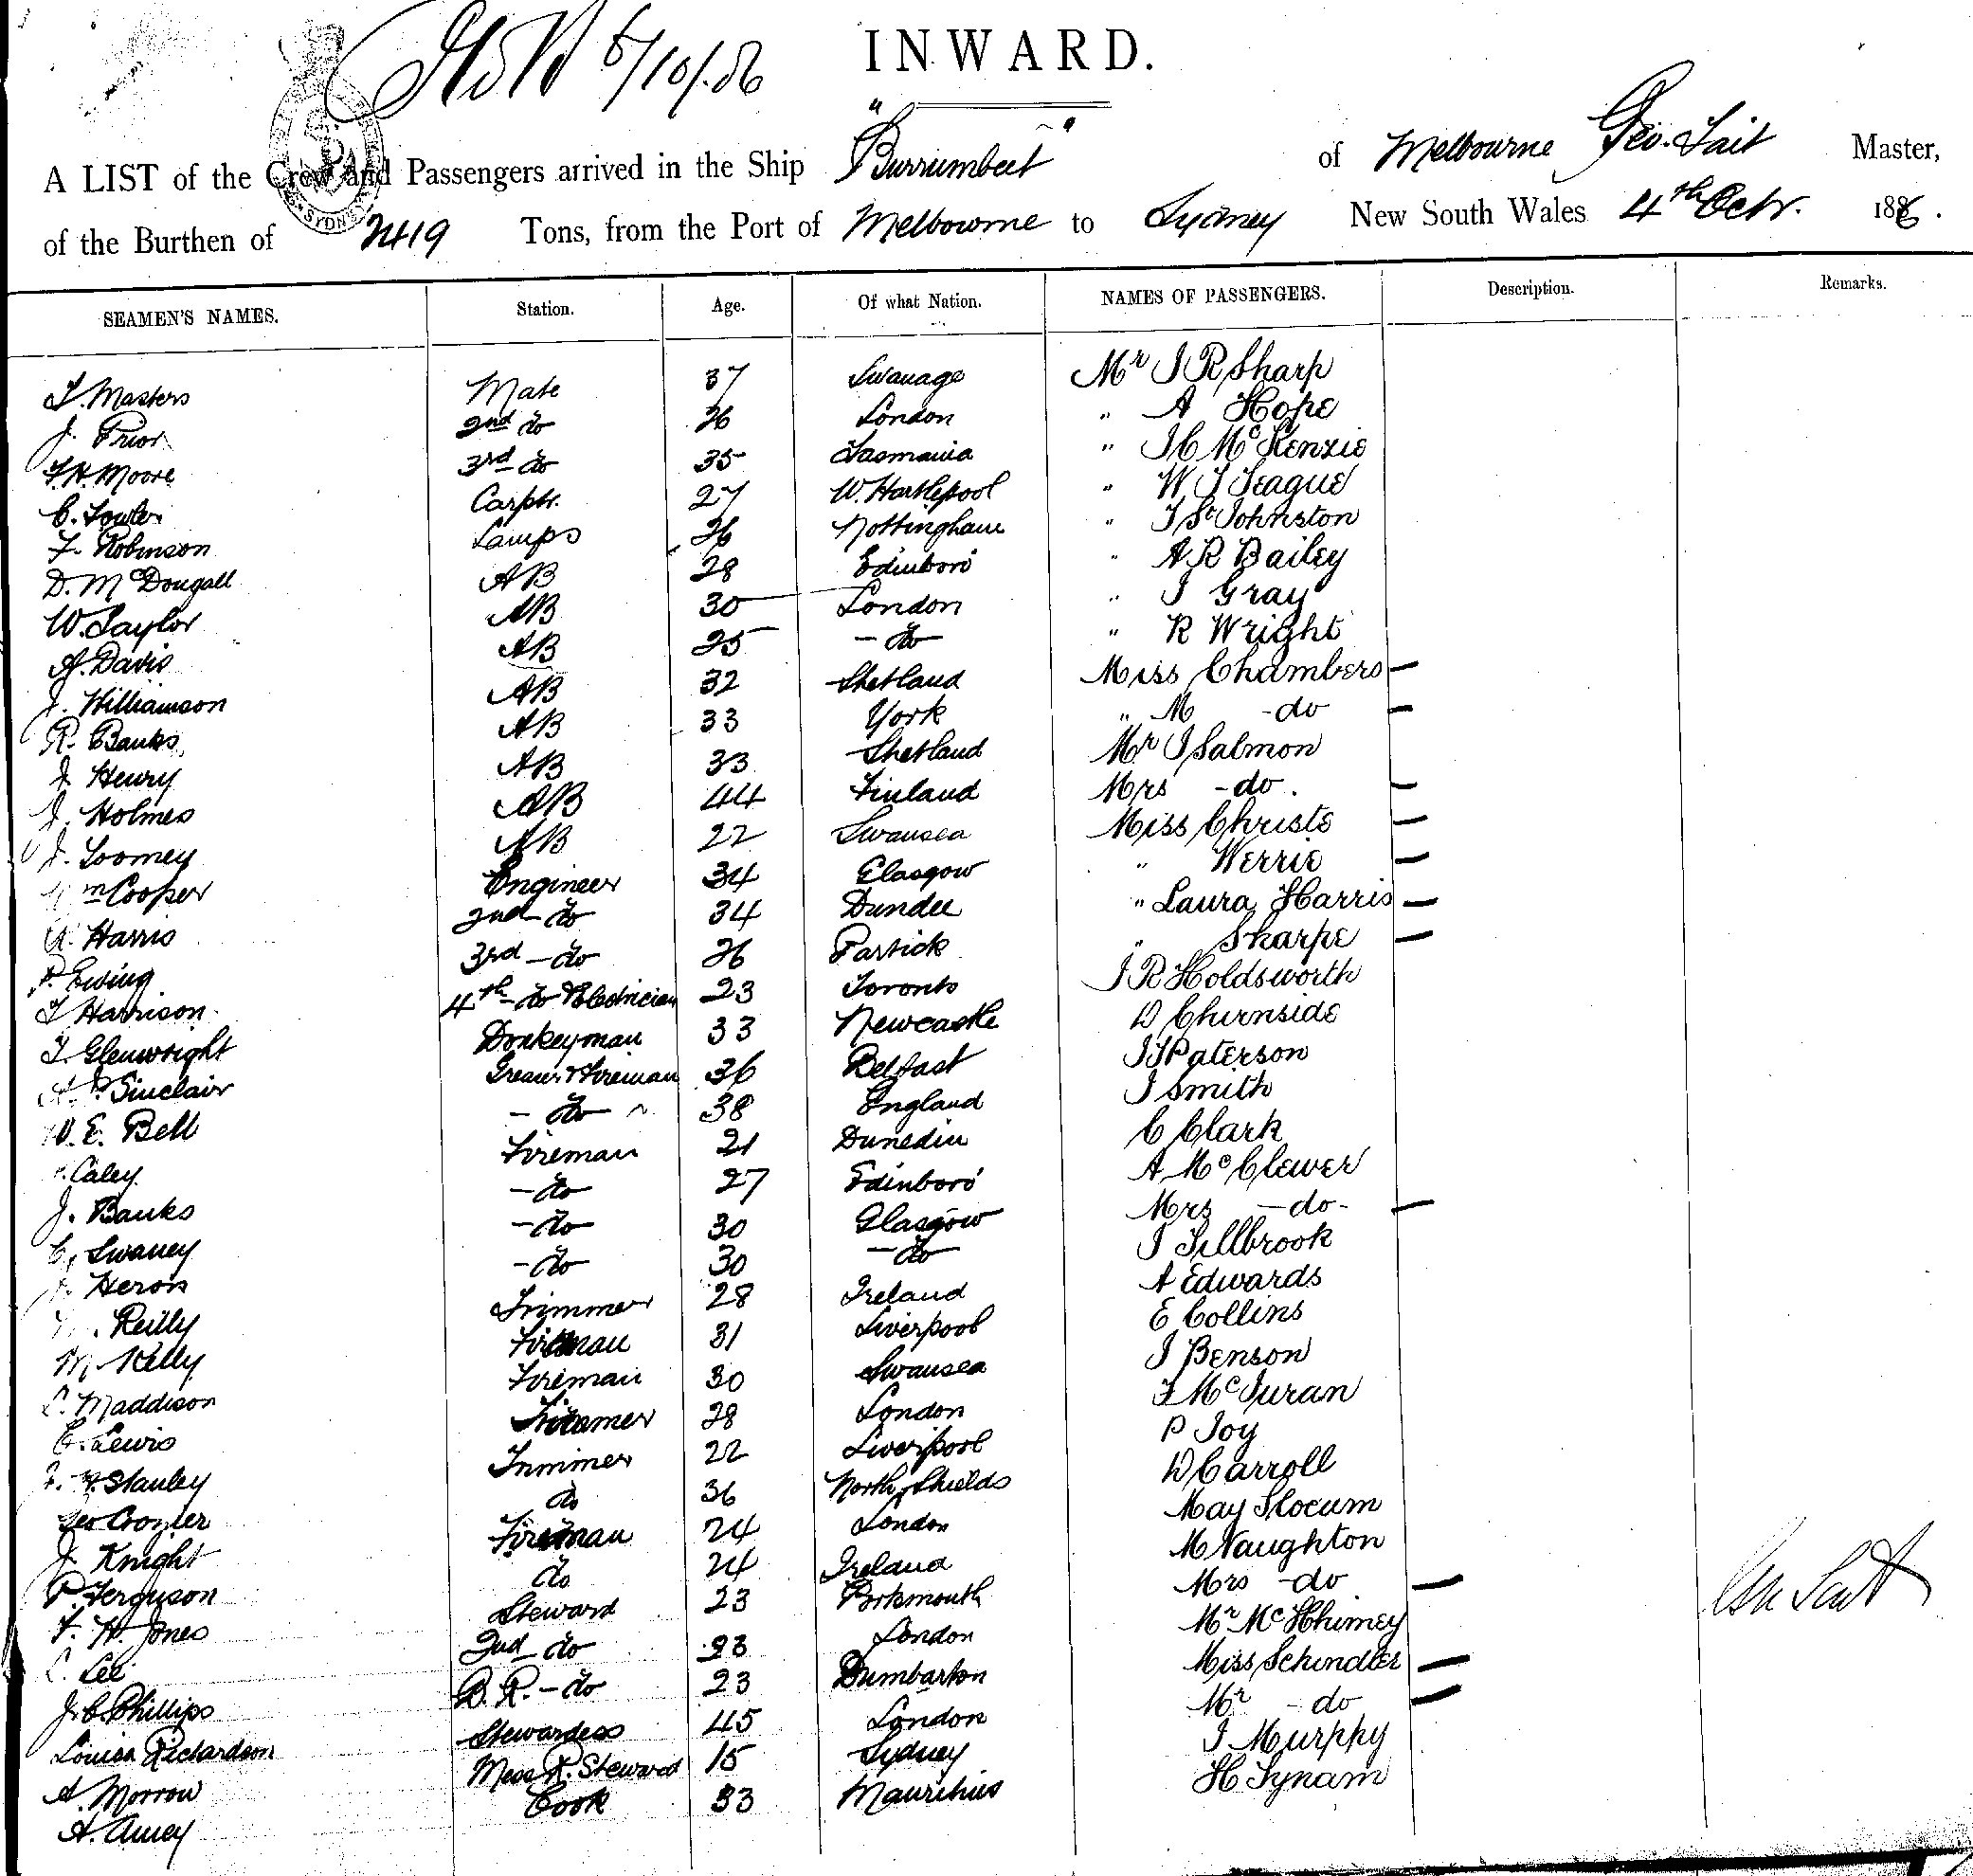 6/10/.86
INWARD.
A LIST of the Crew and Passengers arrived in the Ship "Burrumbeet" of Melbourne Geo. Tait Master,
of the Burthen of 2419 Tons, from the Port of Melbourne to Sydney New South Wales 4th Octr. 1886.
SEAMEN'S NAMES. Station. Age. Of what Nation. NAMES OF PASSENGERS. Description. Remarks.
T. Masters Mate 37 Swanage Mr J R Sharp
J. Prior 2nd do 26 London " A Hope
F. H. Moore 3rd do 35 Tasmania " J C McKenzie
C. Fowler Carptr. 27 W. Hartlepool " W J Teague
F. Robinson Lamps 26 Nottingham " J St Johnston
D. McDougall AB 28 Edinboro' " A R Bailey
W. Taylor AB 30 London " J Gray
A. Davis AB 25 - do " R Wright
J. Williamson AB 32 Shetland Miss Chambers
R. Banks AB 33 York " M - do
J. Henry AB 33 Shetland Mr J Salmon
J. Holmes AB 44 Finland Mrs - do.
J. Toomey AB 22 Swansea Miss Christe
Wm Cooper Engineer 34 Glasgow " Werrie
A. Harris 2nd - do 34 Dundee " Laura Harris
P. Ewing 3rd - do 26 Partick " Sharpe
T Harrison 4th - do Electrician 23 Toronto J R Holdsworth
T. Glenwright Donkeyman 33 Newcastle D Chirnside
Sinclair Greaser & Fireman 36 Belfast J J Paterson
W. E. Bell - do 38 England J Smith
Caley Fireman 21 Dunedin C Clark
J. Banks - do 27 Edinboro' A McClewer
C. Swaney - do 30 Glasgow Mrs - do -
Heron - do 30 - do J Tillbrook
Reilly Trimmer 28 Ireland A Edwards
M. Kelly Fireman 31 Liverpool E Collins
Maddison Fireman 30 Swansea J Benson
C. Lewis Trimmer 28 London F McJuran
Stanley Trimmer 22 Liverpool P Joy
Geo Crozier do 36 North Shields D Carroll
J. Knight Fireman 24 London May Slocum
P. Ferguson do 24 Ireland M Naughton
F. H. Jones Steward 23 Portsmouth Mrs - do
Lee 2nd - do 23 London Mr
J. C. Phillips B. R. - do 23 Dumbarton Miss Schindler
Louisa Richardson Stewardess 45 London Mr - do
A. Morrow Mess R. Steward 15 Sydney J Murphy
A. Amey Cook 33 Mauritius H Tynam